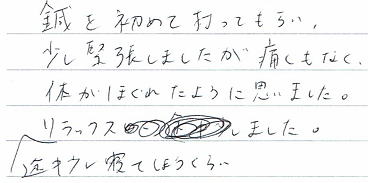 鍼を初めて打ってもらい、
少し緊張しましたが痛くもなく、
体がほぐれたように思いました。
リラックスしました。
途中少し寝てしまうくらい